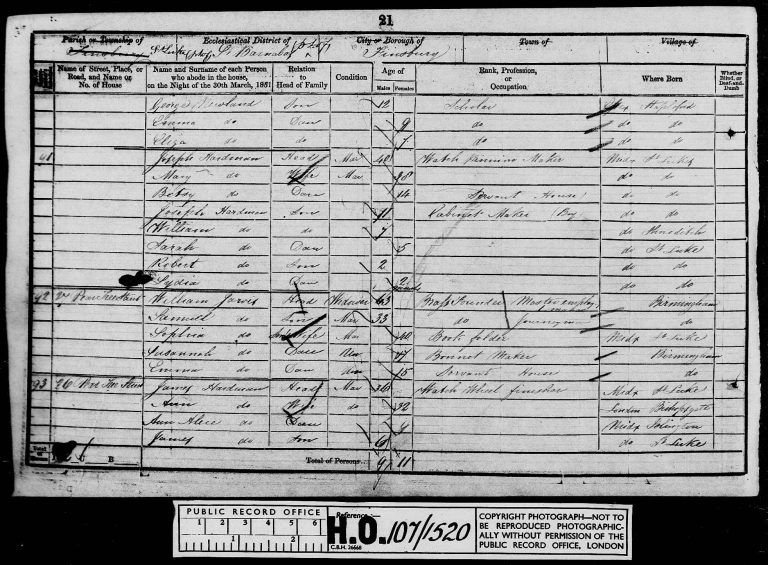 21
Parish or Township of Ecclesiastical District of City or Borough of Town of Village of
Finsbury St Luke St Barnabas Finsbury
Name of Street, Place, or Road, and Name or No. of House Name and Surname of each Person who abode in the house, on the Night of the 30th March, 1851 Relation to Head of Family Condition Age of Males Females Rank, Profession, or Occupation Where Born Whether Blind, or Deaf-and-Dumb
George Son 12 Scholar Midx
Emma do Daur 9 do do do
Eliza do do 7 do do do
91 Joseph Hardman Head Mar 40 Watch Maker Midx St Luke
Mary do Wife Mar 38 do do
Betsy do Daur 14 Servant House do do
Joseph Hardman Son 11 Cabinet Maker Boy do do
William do do 7 do
Sarah do Daur 5 do St Luke
Robert do Son 2 do do
Lydia do Daur 2 do do
92 27 William Jarvis Head Widower 63 Brass Founder Master Birmingham
Samuel do Son Mar 33 do Journeyman do
Sophia do Wife Mar 40 Book folder Midx St Luke
Susannah do 17 Bonnet Maker Birmingham
Emma do Daur 15 Servant House do
93 26 James Hardman Head Mar 36 Watch Wheel finisher Midx St Luke
Ann do Wife do 32 London Bishopsgate
Ann Alice do Daur 9 Midx Islington
James do Son 6 do St Luke
Total of Persons 9 11
PUBLIC RECORD OFFICE
1 2 3 4 5 6
1 2
Reference:-
H.O. 107/1520
C.B.H. 26668
COPYRIGHT PHOTOGRAPH—NOT TO
BE REPRODUCED PHOTOGRAPHIC-
ALLY WITHOUT PERMISSION OF THE
PUBLIC RECORD OFFICE, LONDON